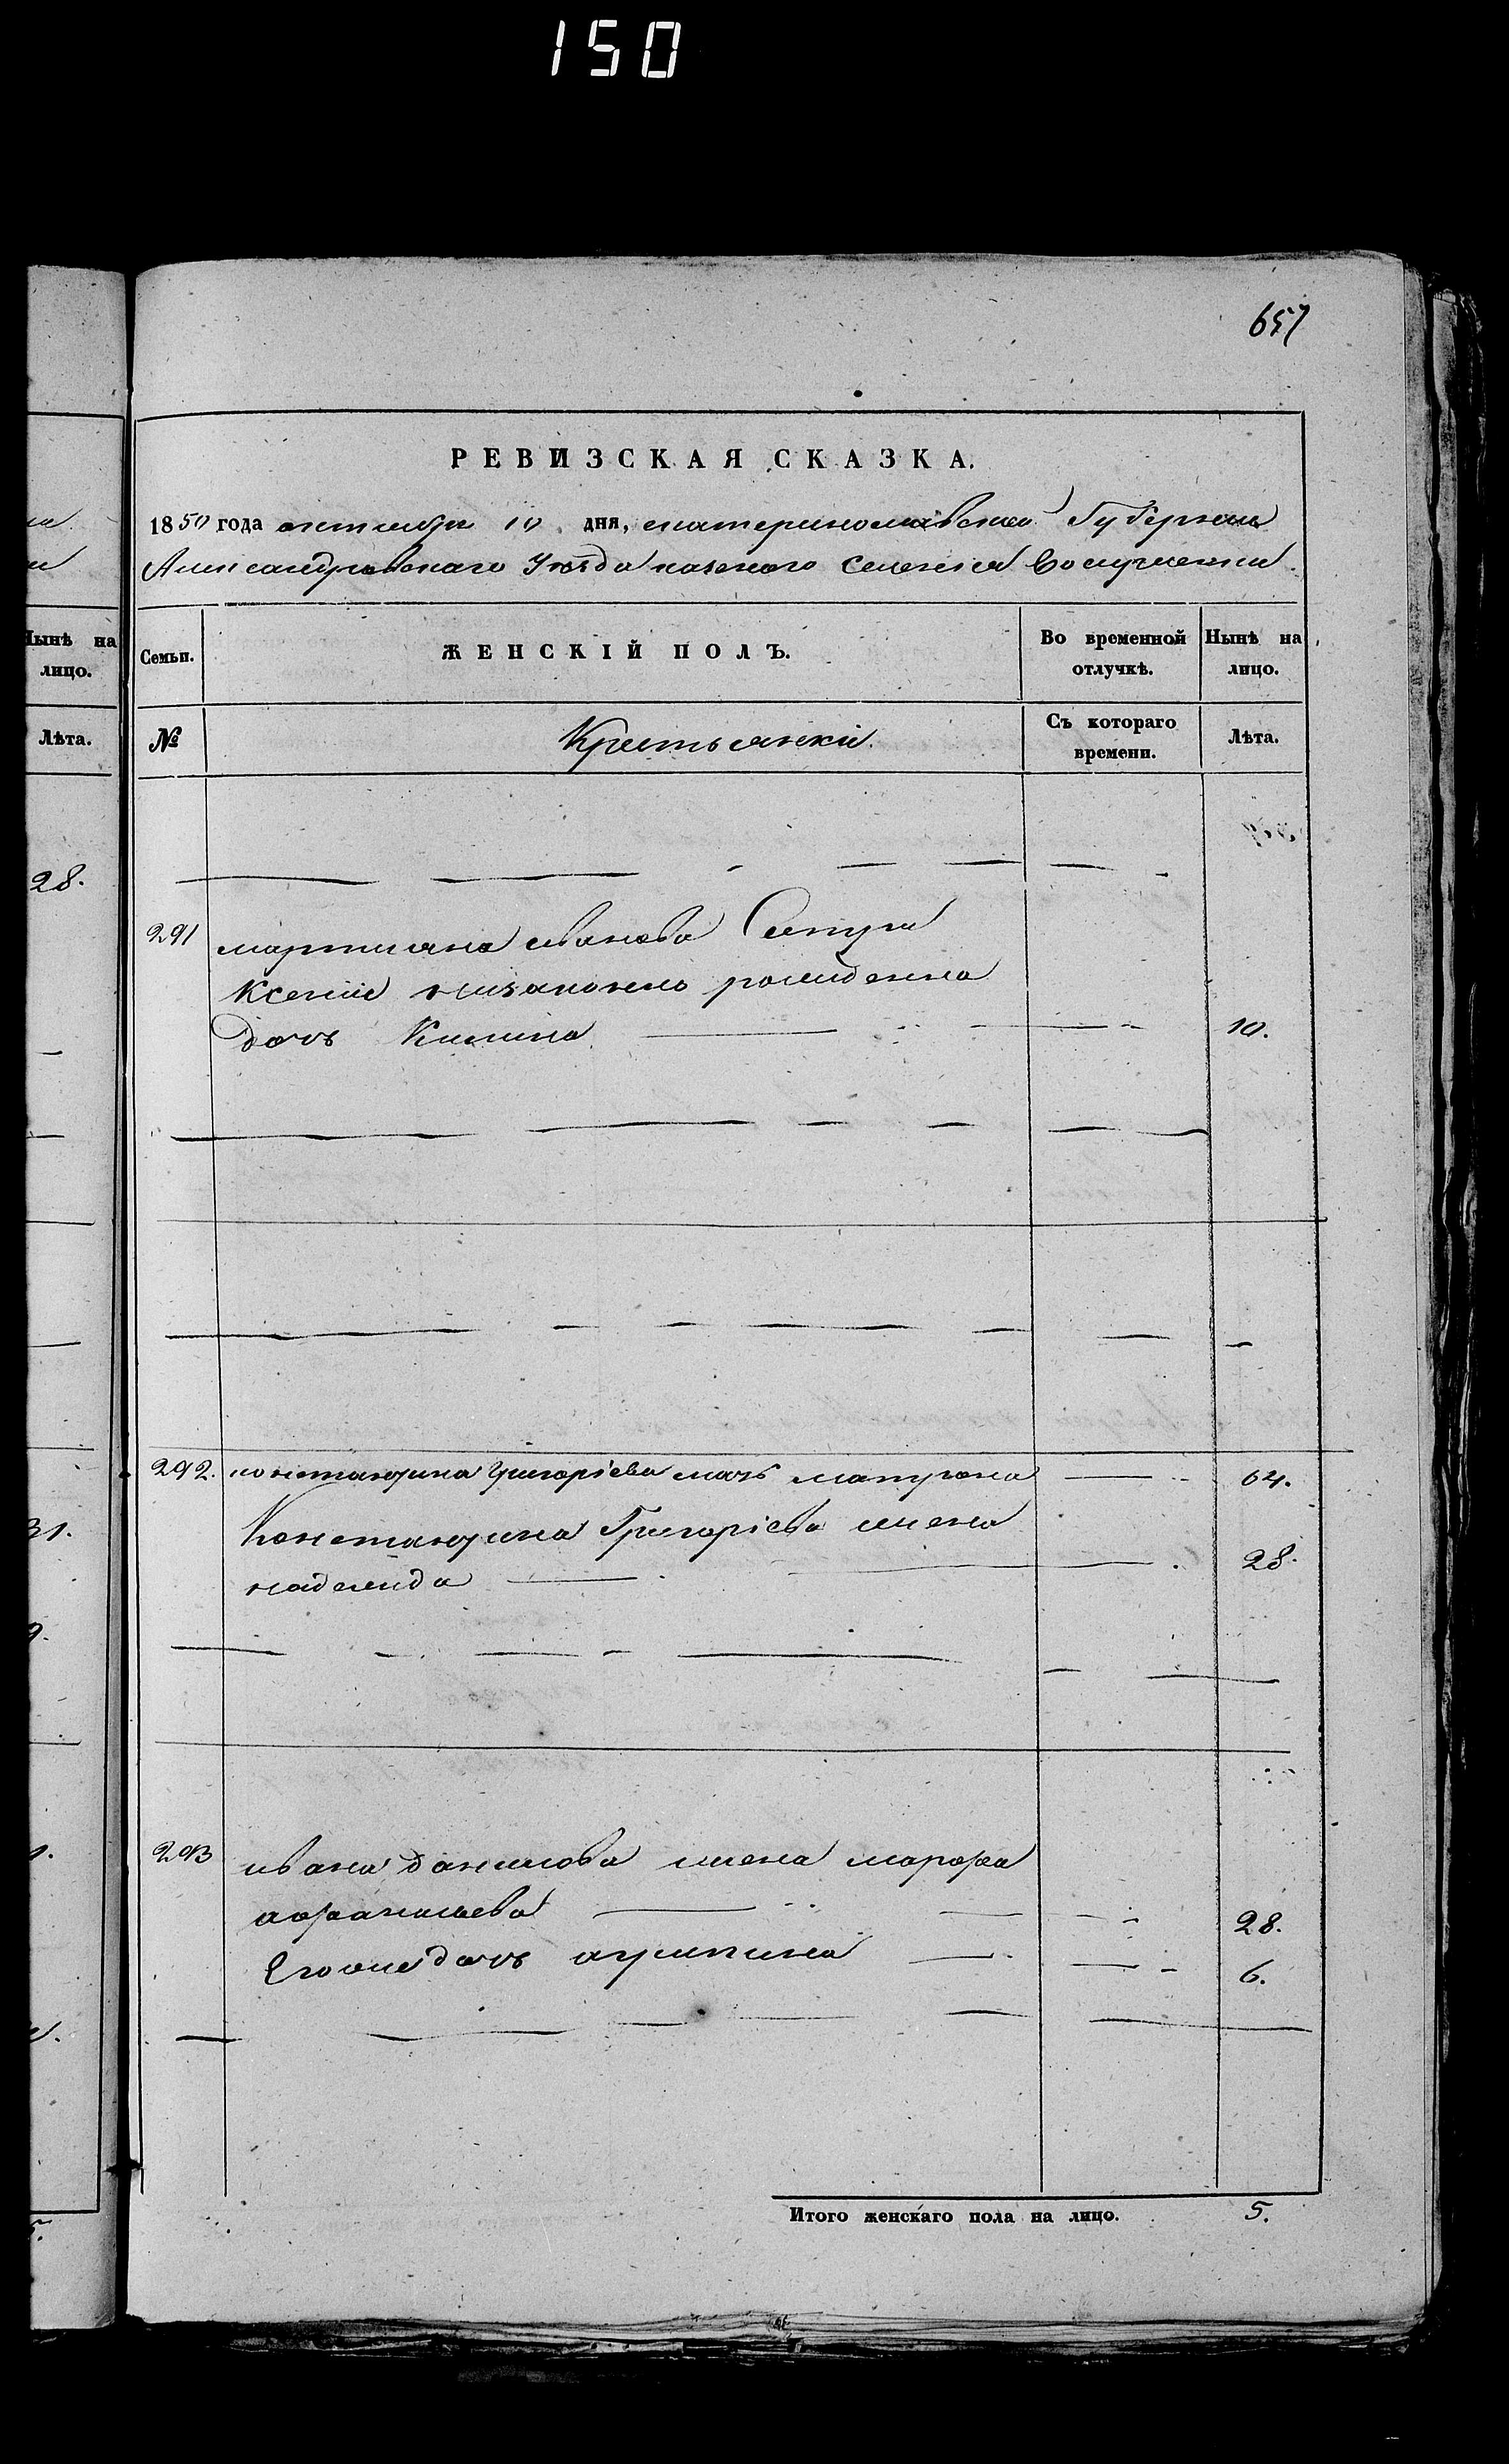 150
657
РЕВИЗСКАЯ СКАЗКА.
1850 года октября 10 дня, екатеринославской Губернии
Александровскаго Уѣзда казенного Селенія Воскресенки
Нынѣ на лицо.
Семьи.
ЖЕНСКІЙ ПОЛЪ.
Во временной отлучкѣ.
Нынѣ на лицо.
Лѣта.
№
Крестьянки.
Съ котораго времени.
Лѣта.
28.
291 мартиана иванова
Ксении низаконно рожденна
дочь 10.
31.
292. константина григоріева мать матрона 64.
Константина Григоріева жена
надежда 28.
293 ивана данилова жена марфа
афанасьева 28.
Егоже дочь агрипина 6.
Итого женскаго пола на лицо. 5.